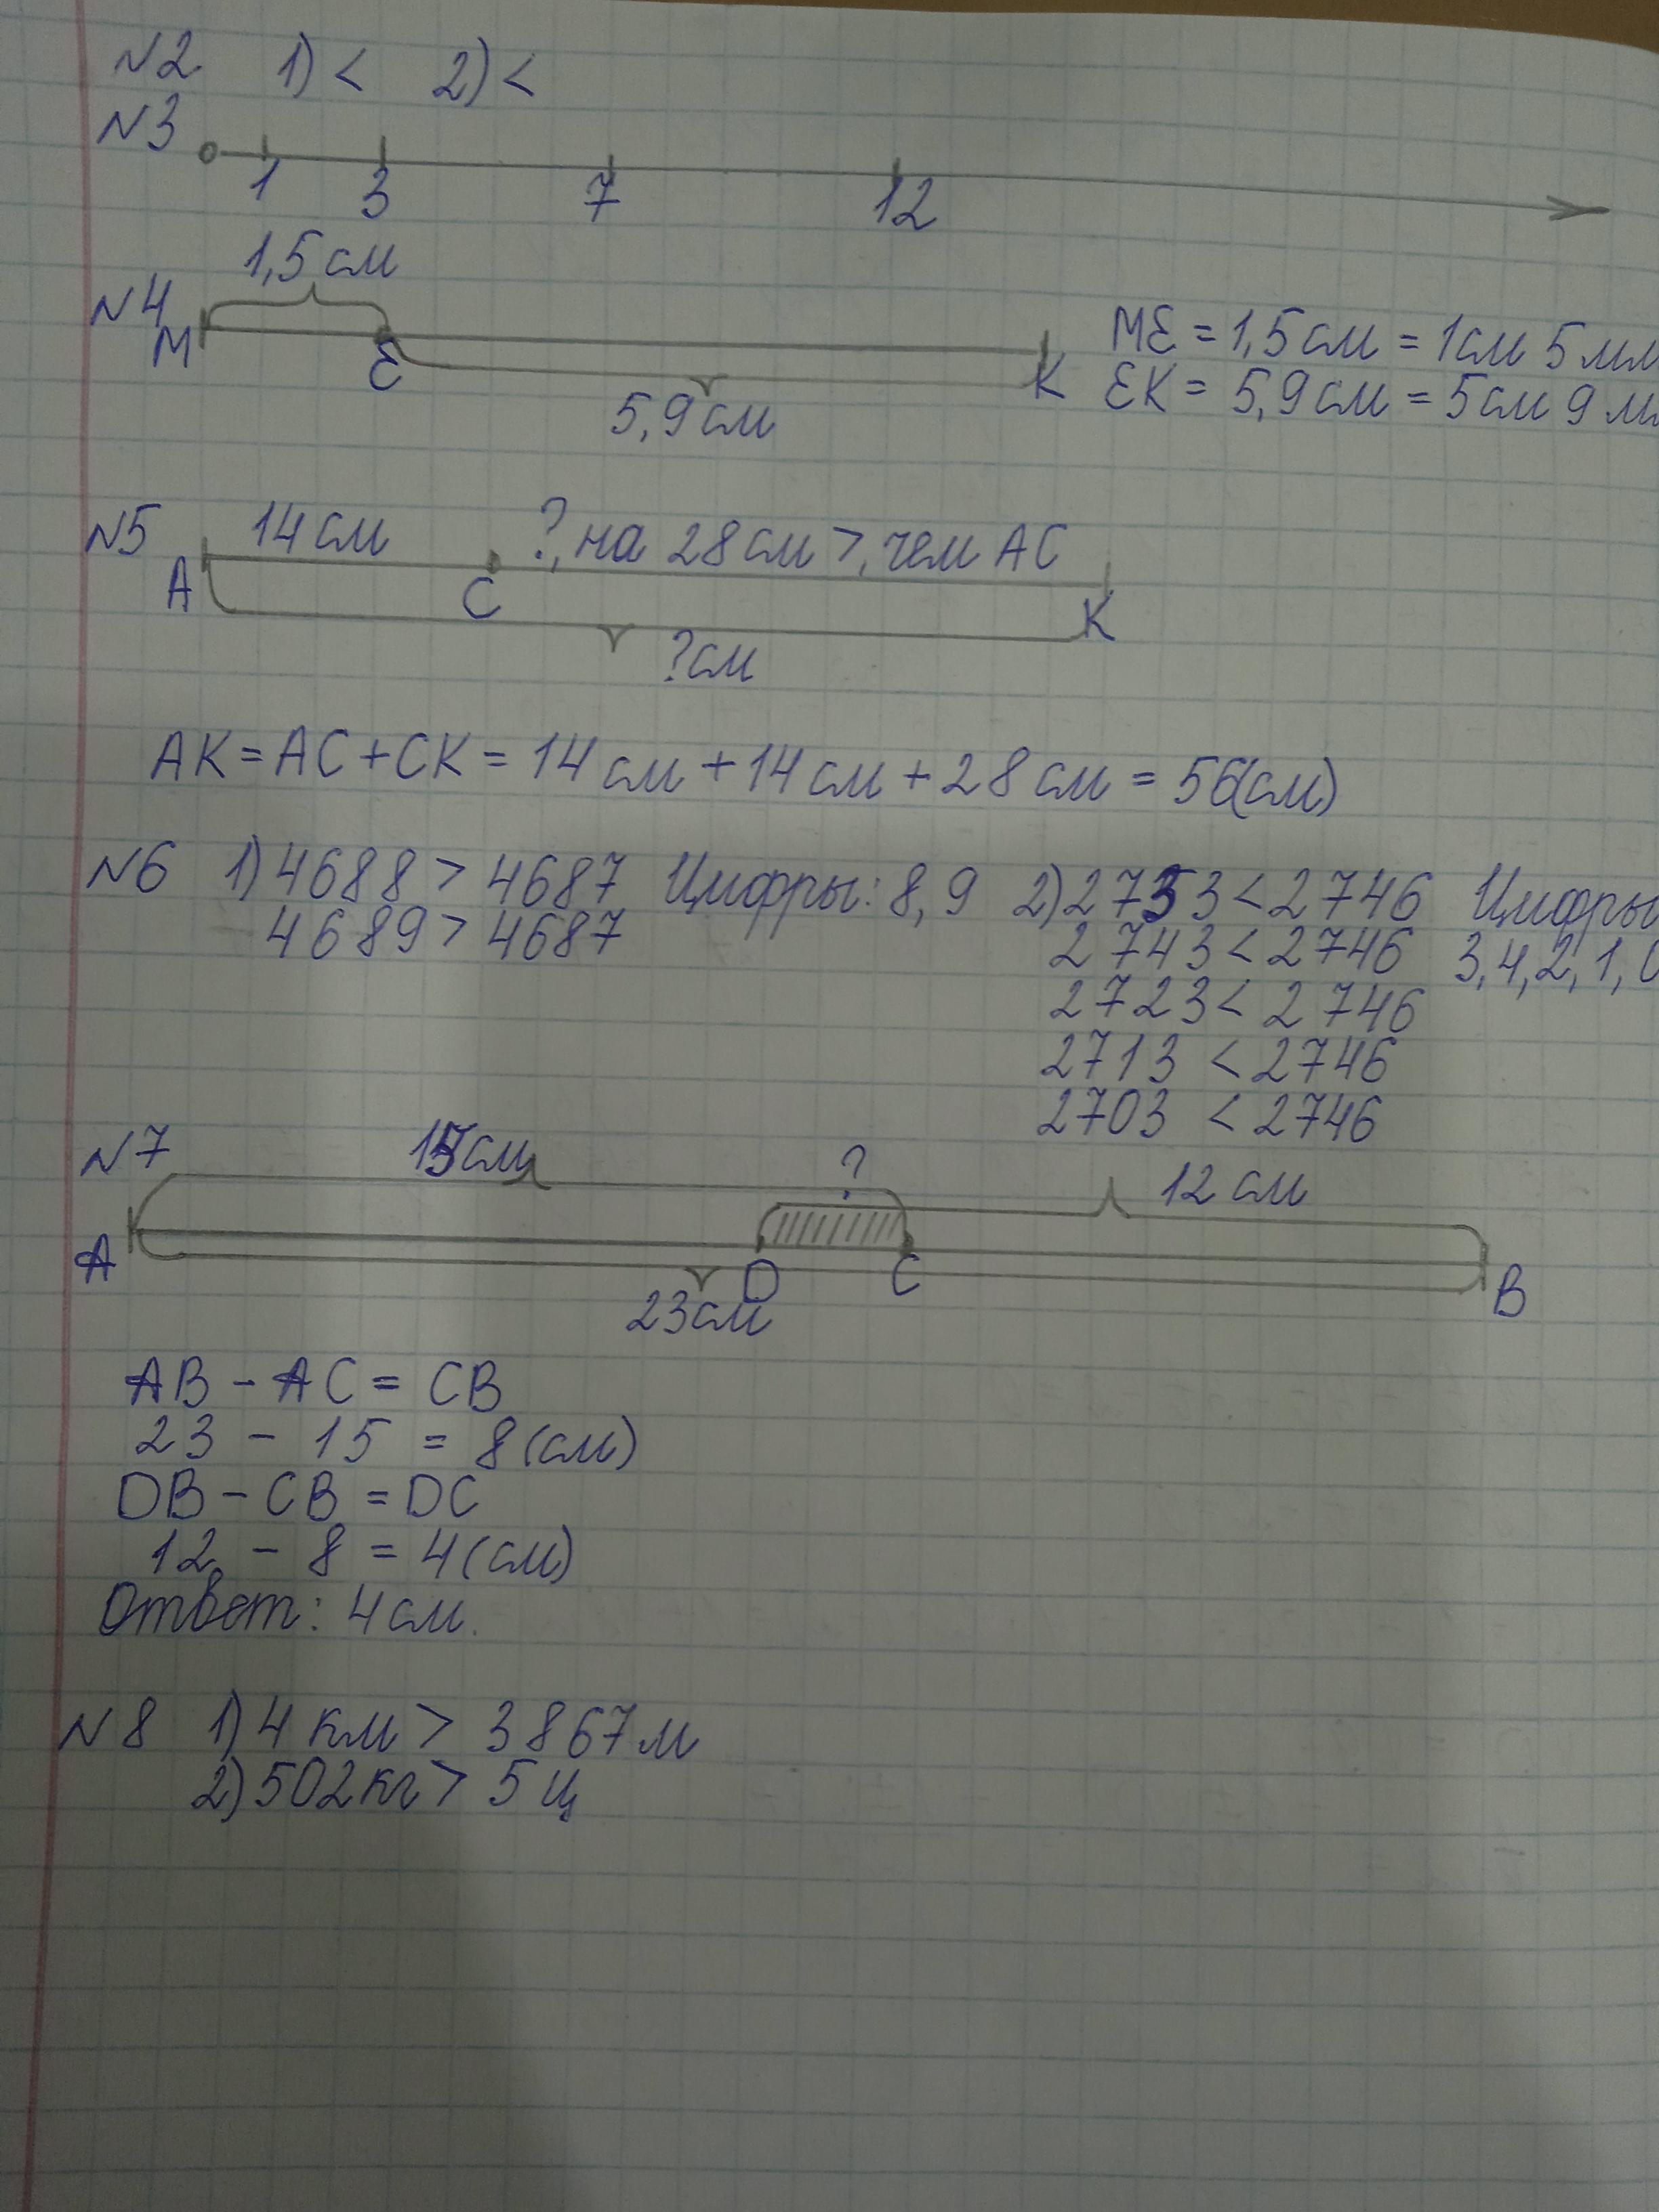 N2 1) < 2) <
N3
1 3 7 12
1,5 см
N4
M E K
5,9 см
ME = 1,5 см = 1 см 5 мм
EK = 5,9 см = 5 см 9 м
N5 14 см ?, на 28 см >, чем AC
A C K
? см
AK = AC + CK = 14 см + 14 см + 28 см = 56 (см)
N6 1) 4688 > 4687 Цифры: 8, 9
4689 > 4687
2) 2733 < 2746 Цифры
2743 < 2746 3, 4, 2, 1, 0
2723 < 2746
2713 < 2746
2703 < 2746
N7 15 см ? 12 см
A D C B
23 см
AB - AC = CB
23 - 15 = 8 (см)
DB - CB = DC
12 - 8 = 4 (см)
Ответ: 4 см.
N8 1) 4 км > 3867 м
2) 502 кг > 5 ц